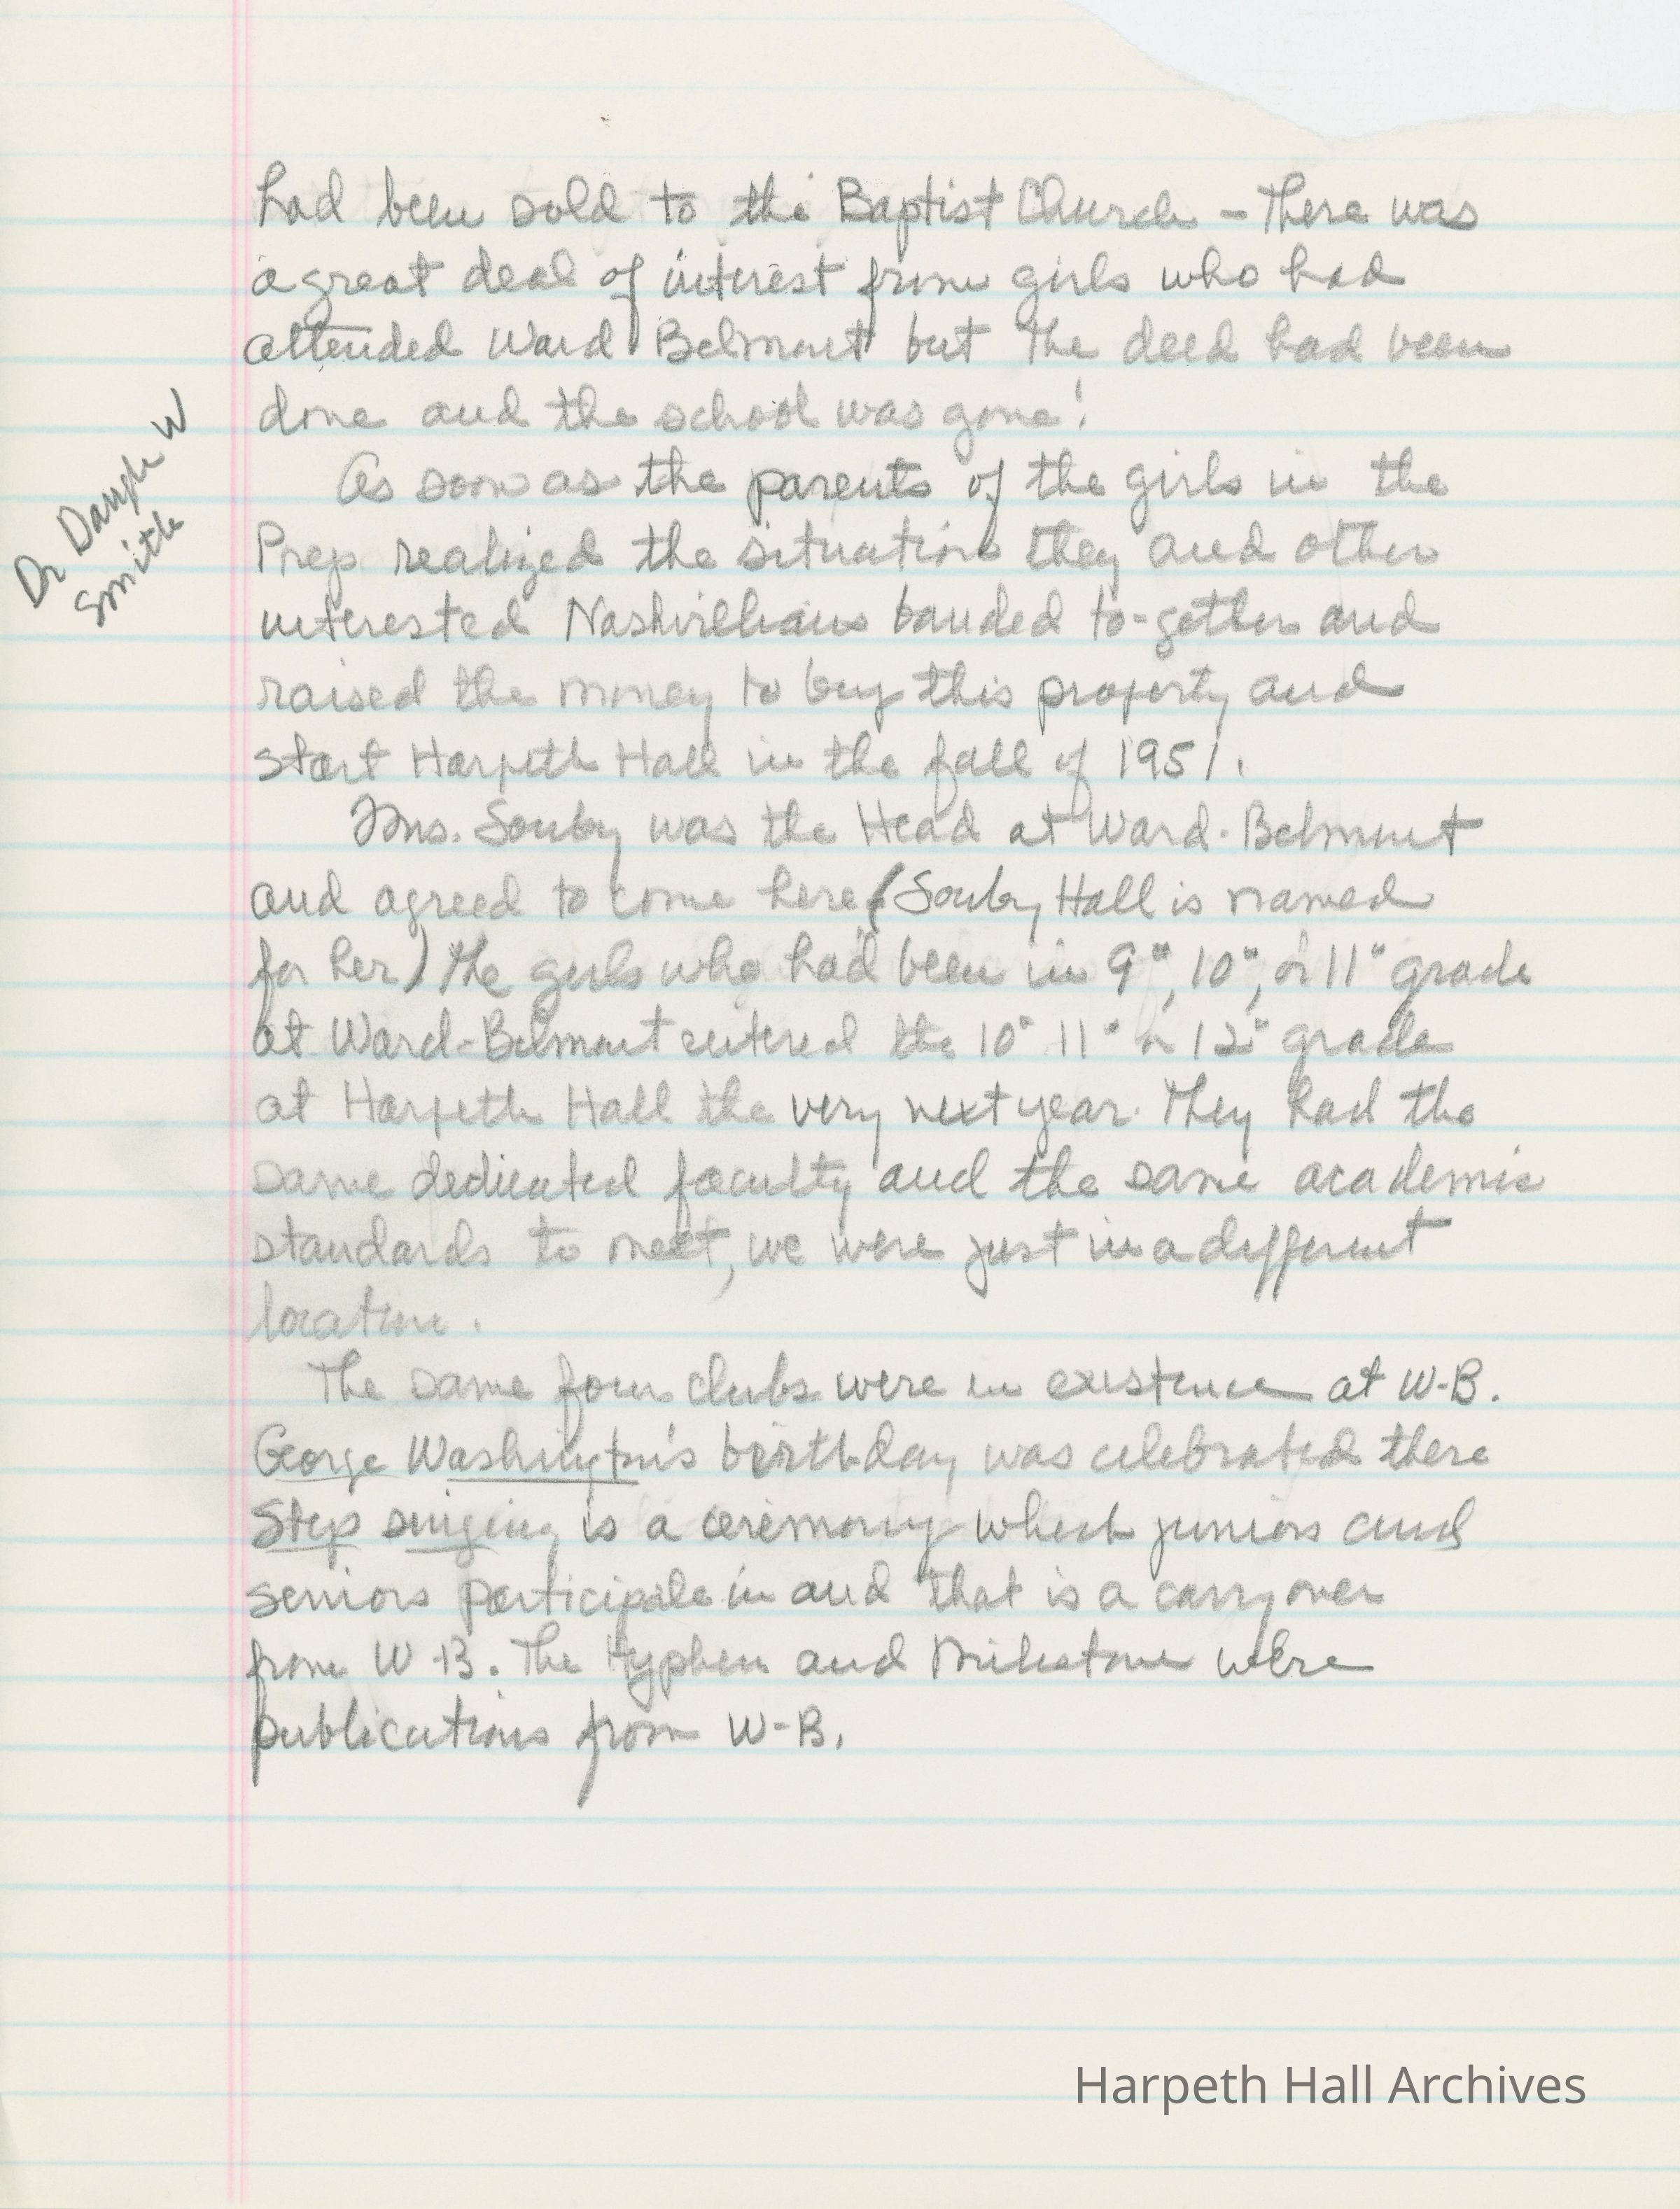 had been sold to the Baptist Church - There was
a great deal of interest from girls who had
attended Ward Belmont but the deed had been
done and the school was gone!
As soon as the parents of the girls in the
Prep realized the situation they and other
interested Nashvillians banded to-gether and
raised the money to buy this property and
start Harpeth Hall in the fall of 1951.
Mrs. Souby was the Head at Ward-Belmont
and agreed to come here (Souby Hall is named
for her) The girls who had been in 9", 10", or 11" grade
at Ward-Belmont entered the 10" 11" or 12" grade
at Harpeth Hall the very next year. They had the
same dedicated faculty and the same academic
standards to meet, we were just in a different
location.
The same four clubs were in existence at W-B.
George Washington's birthday was celebrated there
Step singing is a ceremony which juniors and
seniors participate in and that is a carry over
from W-B. The Hyphen and Milestone were
publications from W-B.
Dr W
Smith
Harpeth Hall Archives